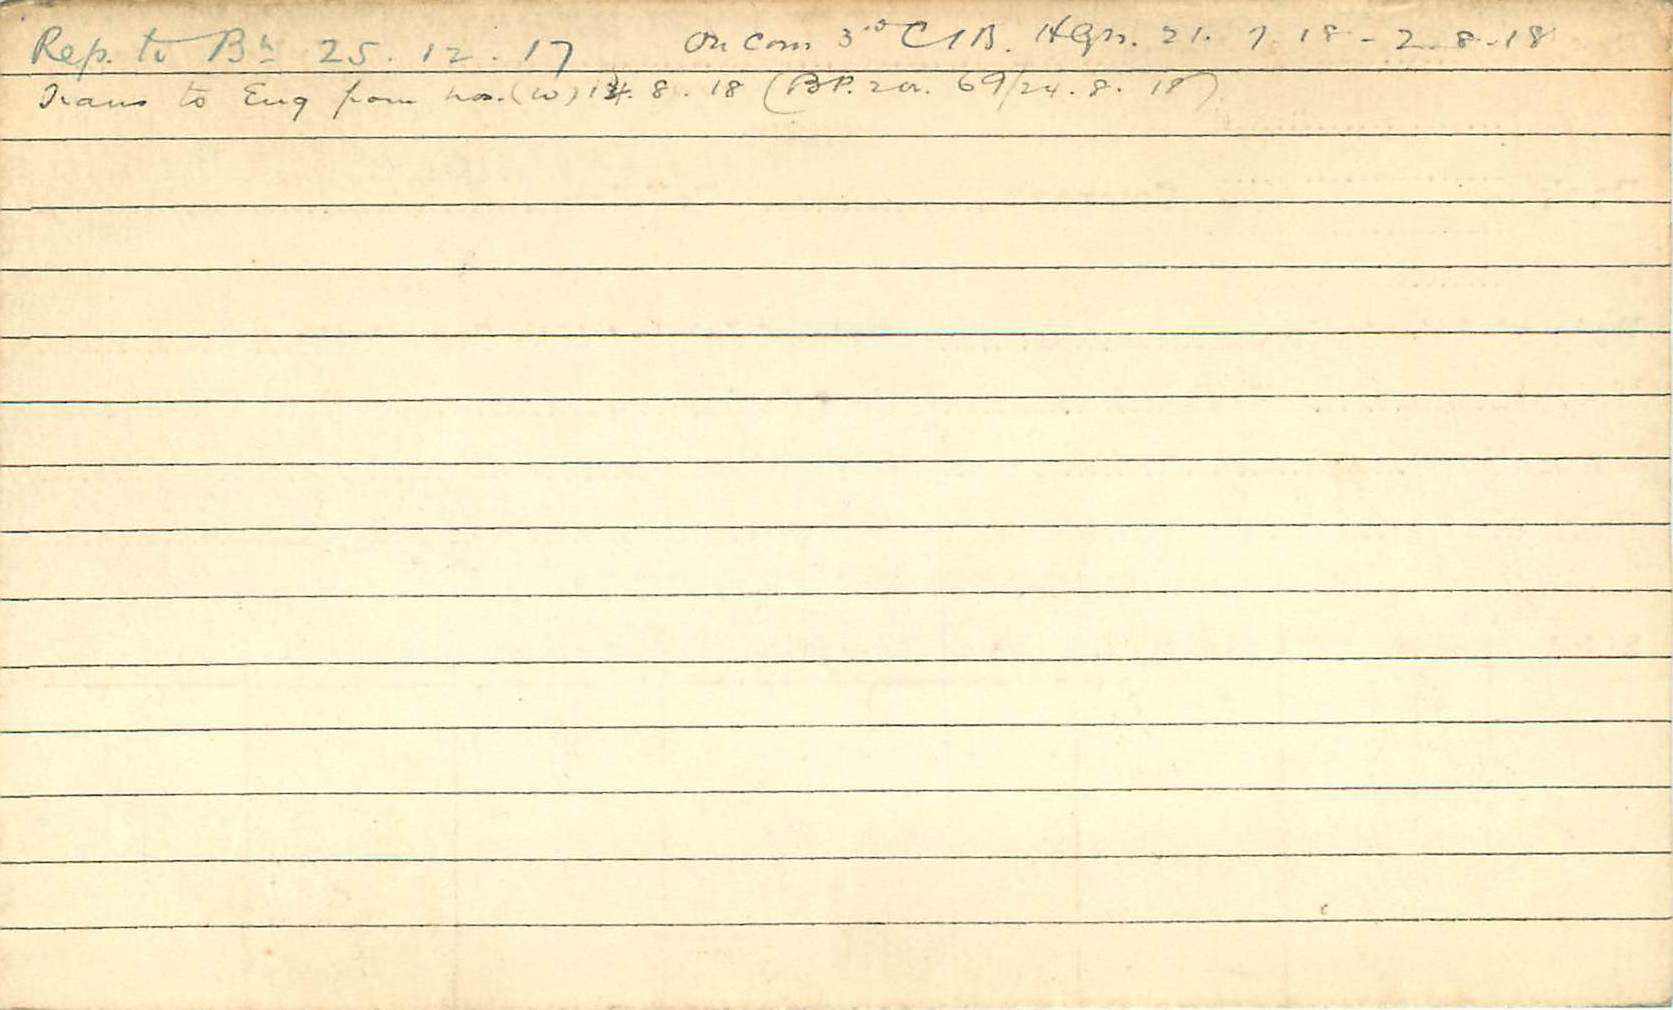 Rep. to Bn 25.12.17 On Com 3rd C I B. Hqrs. 21.7.18 - 2.8.18
Trans to Eng from hos. (W) 14.8.18 (BP. 201. 69/24.8.18)